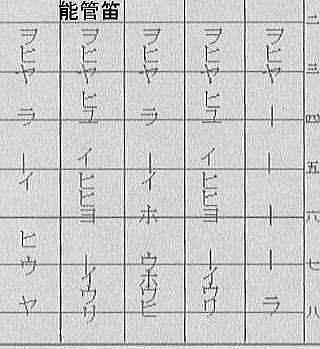 能管笛
二三四五六七八
ヲヒヤーーーーラ
ヲヒヤヒユイヒヒヨーイウリ
ヲヒヤラーイホウホウヒ
ヲヒヤヒユイヒヒヨーイウリ
ヲヒヤラーイヒウヤ